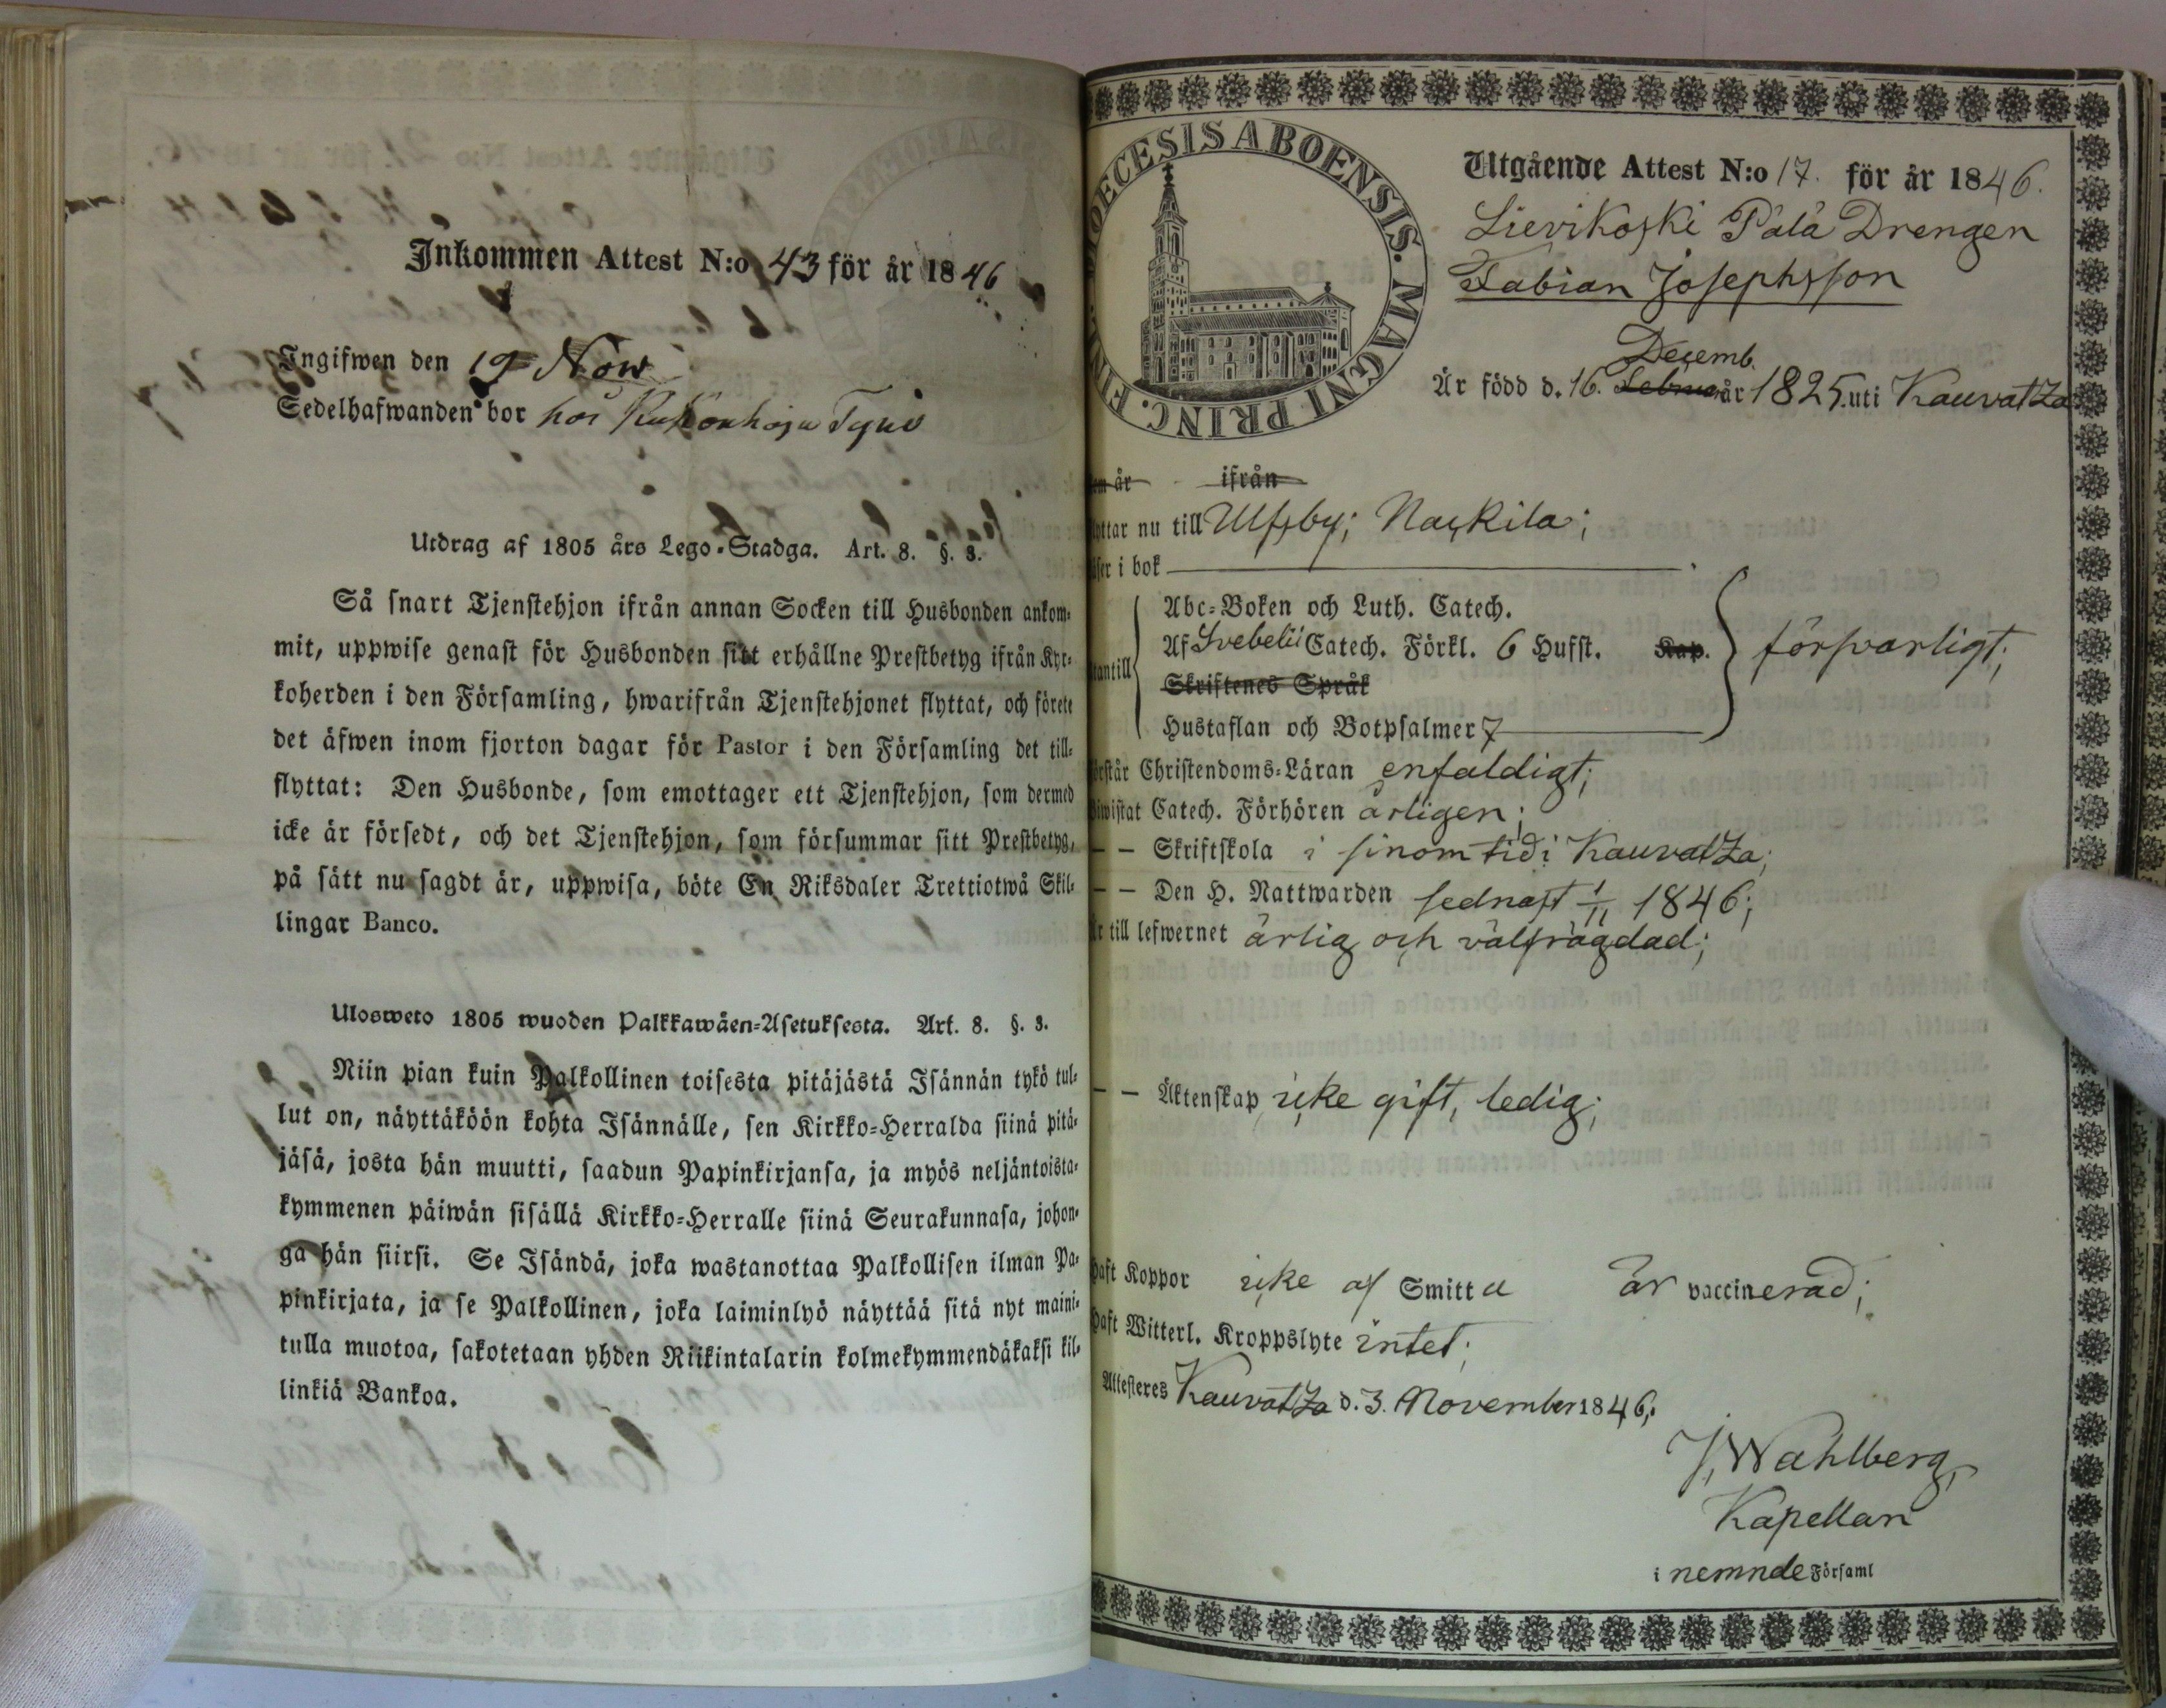 Inkommen Attest N:o 43 för år 1846
Ingifwen den 19 Nov
Sedelhafwanden bor hos
Utdrag af 1805 års Lego-Stadga. Art. 8. §. 3.
Så snart Tjenstehjon ifrån annan Socken till Husbonden ankom-
mit, uppwise genast för Husbonden sitt erhållne Prestbetyg ifrån Kyr-
koherden i den Församling, hwarifrån Tjenstehjonet flyttat, och förete
det äfwen inom fjorton dagar för Pastor i den Församling det till-
flyttat: Den Husbonde, som emottager ett Tjenstehjon, som dermed
icke är försedt, och det Tjenstehjon, som försummar sitt Prestbetyg,
på sätt nu sagdt är, uppwisa, böte En Riksdaler Trettiotwå Skil-
lingar Banco.
Ulosweto 1805 wuoden Palkkawäen-Asetuksesta. Art. 8. §. 3.
Niin pian kuin Palkollinen toisesta pitäjästä Isännän tykö tul-
lut on, näyttäköön kohta Isännälle, sen Kirkko-Herralda siinä pitä-
jäsä, josta hän muutti, saadun Papinkirjansa, ja myös neljäntoista-
kymmenen päiwän sisällä Kirkko-Herralle siinä Seurakunnasa, johon-
ga hän siirsi. Se Isändä, joka wastanottaa Palkollisen ilman Pa-
pinkirjata, ja se Palkollinen, joka laiminlyö näyttää sitä nyt maini-
tulla muotoa, sakotetaan yhden Riikintalarin kolmekymmendäkaksi kil-
linkiä Bankoa.
DIOECESIS ABOENSIS. MAGNI PRINC. FINL.
Utgående Attest N:o 17. för år 1846.
Lievikoski Pälä Drengen
Fabian Josephsson
Decemb.
Är född d. 16. Februa år 1825. uti Kauvatza
om år ifrån
yttar nu till Ulfsby; Nackila;
äser i bok
Abc-Boken och Luth. Catech.
Af Svebelii Catech. Förkl. 6 Hufst. Kap. försvarligt;
tantill
Skriftenes Språk
Hustaflan och Botpsalmer 7
örstår Christendoms-Läran enfaldigt;
iwistat Catech. Förhören årligen;
— — Skriftskola i sinom tid i Kauvatza;
— — Den H. Nattwarden sednast 1/11 1846;
Är till lefwernet ärlig och välfrägdad;
— — Äktenskap icke gift, ledig;
Haft Koppor icke af Smitta är vaccinerad;
Haft Witterl. Kroppslyte intet;
Attesteres Kauvatza d. 3. November 1846;
J. Wahlberg,
Kapellan
i nemnde Församl